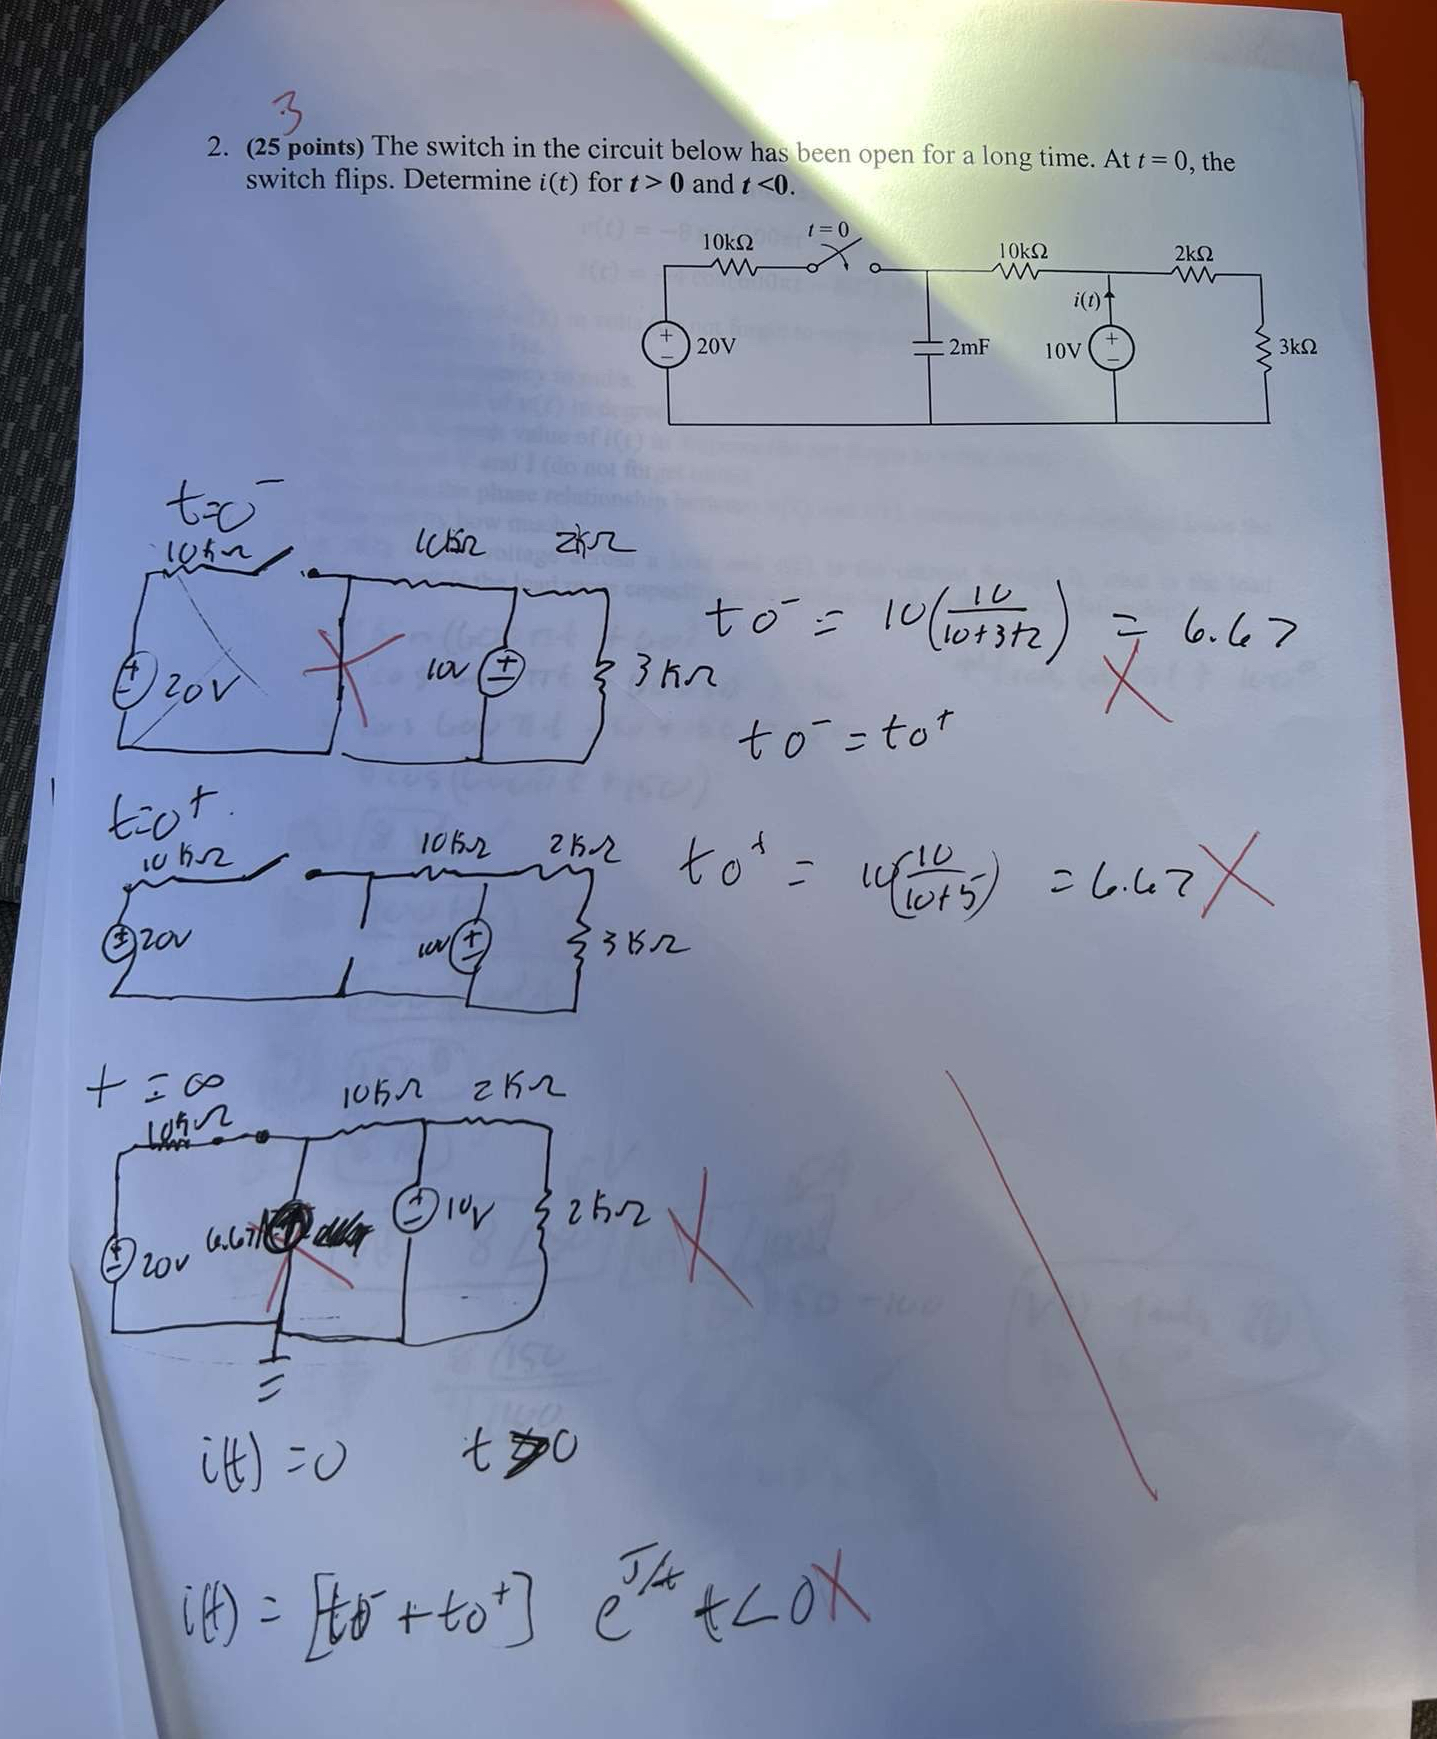 3
2. (25 points) The switch in the circuit below has been open for a long time. At t = 0, the
switch flips. Determine i(t) for t > 0 and t <0.
10kΩ
t = 0
10kΩ
2kΩ
i(t)
+
−
20V
2mF
10V
+
−
3kΩ
t=0⁻
10kΩ
10kΩ
2kΩ
20V
10V
3kΩ
t0⁻ = 10(10/(10+3+2)) = 6.67
t0⁻ = t0⁺
t=0⁺
10kΩ
10kΩ
2kΩ
20V
10V
3kΩ
t0⁺ = 10(10/(10+5)) = 6.67
t = ∞
10kΩ
10kΩ
2kΩ
20V
6.67
10V
2kΩ
i(t) = 0 t>0
i(t) = [t0⁻ + t0⁺] e^(T/t) t<0